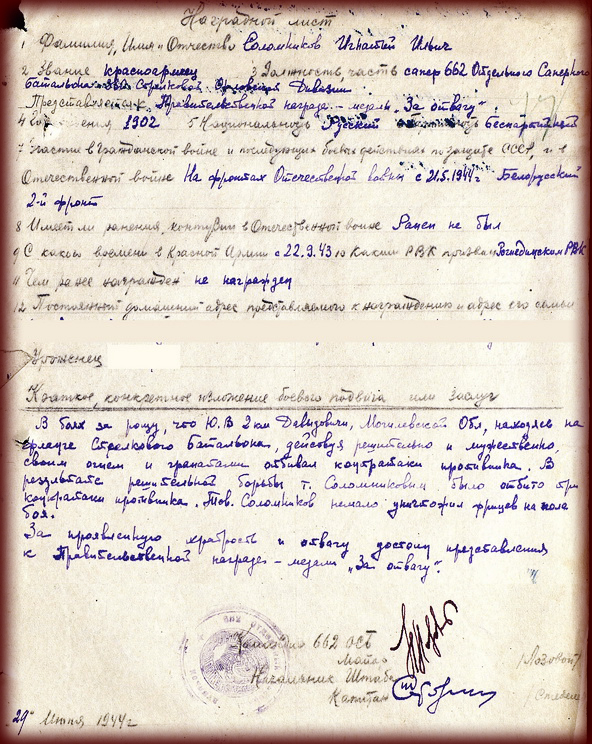 Наградной лист
1 Фамилия, Имя и Отчество Соломников Игнатий Ильич
2 Звание красноармеец 3 Должность, часть сапер 662 Отдельного Саперного
батальона Стрелковой Дивизии
Представляется к Правительственной награде - медаль "За отвагу"
4 1902 5 Национальность Русский беспартийный
7 Участие в гражданской войне и последующих боевых действиях по защите СССР, и в
Отечественной войне На фронтах Отечественной войны с 21.5.1944г Белорусский
2-й фронт
8 Имеет ли ранения, контузии в Отечественной войне Ранен не был
9 С какого времени в Красной Армии с 22.9.43 10 Каким РВК призван РВК
11 Чем ранее награжден не награжден
12 Постоянный домашний адрес представляемого к награждению и адрес его семьи
Уроженец
Краткое, конкретное изложение боевого подвига или заслуг
В боях за рощу, что Ю.В 2 км Девидовичи, Могилевской Обл, находясь на
фланге Стрелкового Батальона, действуя решительно и мужественно,
своим огнем и гранатами отбивал контратаки противника. В
результате решительной борьбы т. Соломниковым было отбито три
контратаки противника. Тов. Соломников немало уничтожил фрицев на поле
боя.
За проявленную храбрость и отвагу достоин представления
к Правительственной награде - медали "За отвагу".
662 ОСБ
Майор /Лозовой/
Начальник Штаба
Капитан
"29" Июня 1944г